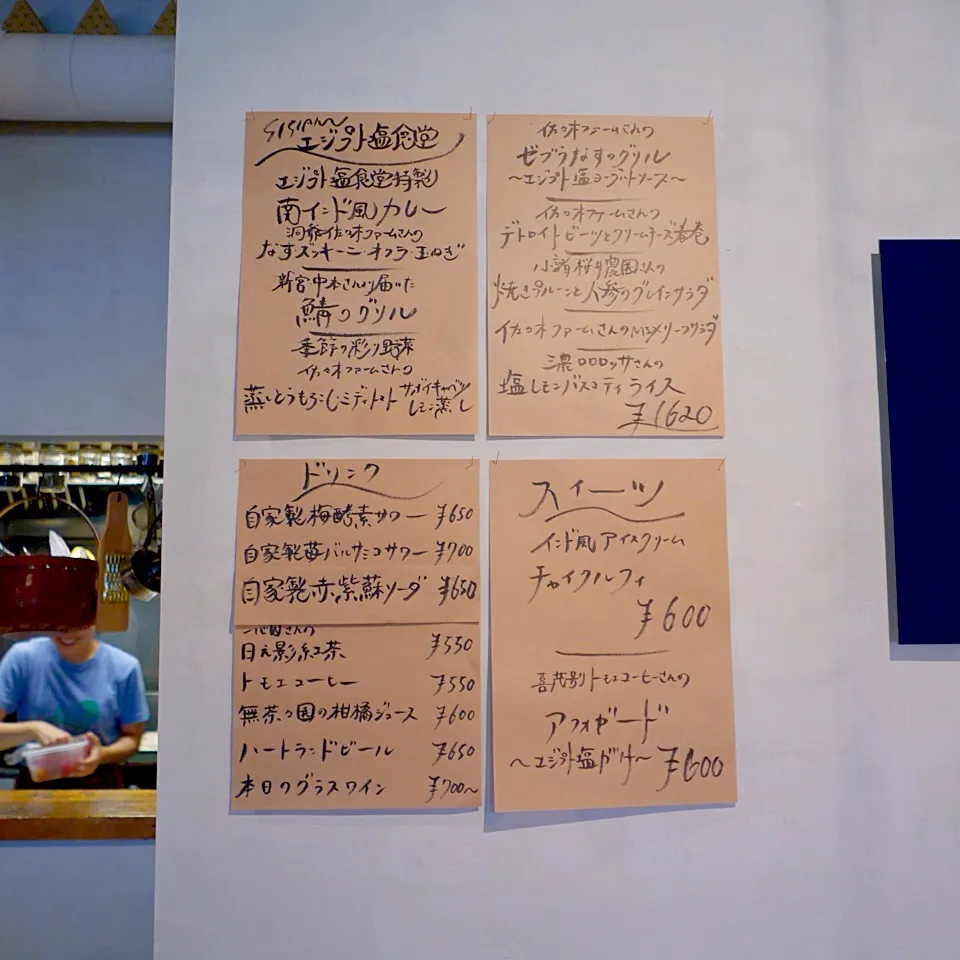 エジプト塩食堂
エジプト塩食堂特製
南インド風カレー
洞爺佐々木ファームさんの
なす・ズッキーニ・オクラ・玉ねぎ
新宮中本さんより届いた
鯖のグリル
季節の彩り野菜
佐々木ファームさんの
蒸しとうもろこしミディトマト サボイキャベツレモン蒸し
佐々木ファームさんの
ゼブラなすのグリル
〜エジプト塩ヨーグルトソース〜
佐々木ファームさんの
デトロイトビーツとクリームチーズ春巻
小諸桜井農園さんの
焼きプルーンと人参のグレインサラダ
佐々木ファームさんのMIXリーフサラダ
さんの
塩レモンバスマティライス
¥1620
ドリンク
自家製梅酵素サワー ¥650
自家製苺バルサミコサワー ¥700
自家製赤紫蘇ソーダ ¥650
さんの
日之影紅茶 ¥550
トモエコーヒー ¥550
無茶々園の柑橘ジュース ¥600
ハートランドビール ¥650
本日のグラスワイン ¥700〜
スイーツ
インド風アイスクリーム
チャイクルフィ
¥600
喜茂別トモエコーヒーさんの
アフォガード
〜エジプト塩がけ〜 ¥600